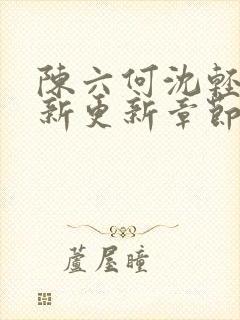 陳六何沈輕
新更新章節
蘆屋瞳